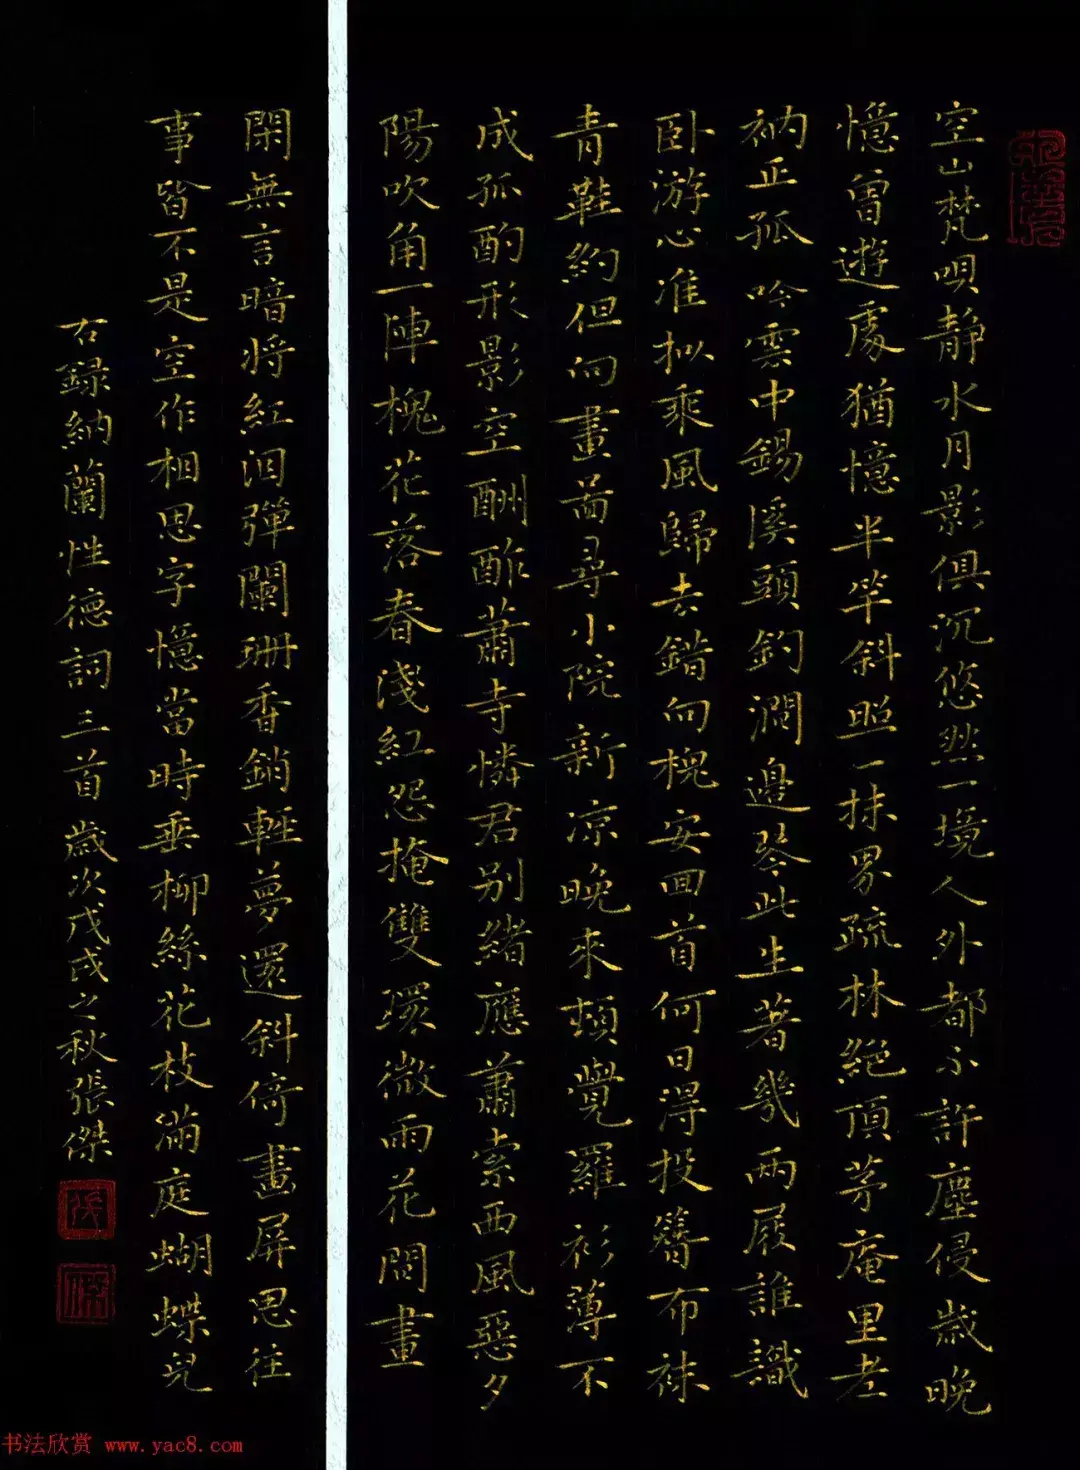 空山梵唄靜水月影俱沉悠然一境人外都不許塵侵歲晚
憶曾遊處猶憶半竿斜照一抹界疏林絕頂茅庵里老
衲正孤吟雲中錫溪頭釣澗邊琴此生著幾兩屐誰識
卧游心准拟乘風歸去錯向槐安回首何日得投簪布袜
青鞋約但向畫啚尋小院新涼晚來頓覺羅衫薄不
成孤酌形影空酬酢蕭寺憐君别緒應蕭索西風惡夕
陽吹角一陣槐花落春淺紅怨掩雙環微雨花間畫
閑無言暗將紅泪彈闌珊香銷輕夢還斜倚畫屏思往
事皆不是空作相思字憶當時垂柳絲花枝滿庭蝴蝶兒
右録納蘭性德詞三首歲次戊戌之秋張傑
书法欣赏 www.yac8.com